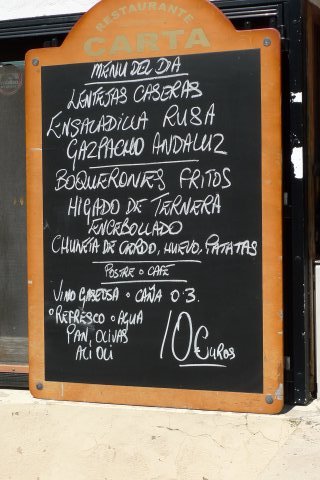 RESTAURANTE
CARTA
MENU DEL DIA
LENTEJAS CASERAS
ENSALADILLA RUSA
GAZPACHO ANDALUZ
BOQUERONES FRITOS
HIGADO DE TERNERA
ENCEBOLLADO
CHULETA DE CERDO, HUEVO, PATATAS
POSTRE o CAFE
VINO GASEOSA o CAÑA 0'3.
o REFRESCO o AGUA
PAN, OLIVAS
ALI OLI
10€UROS